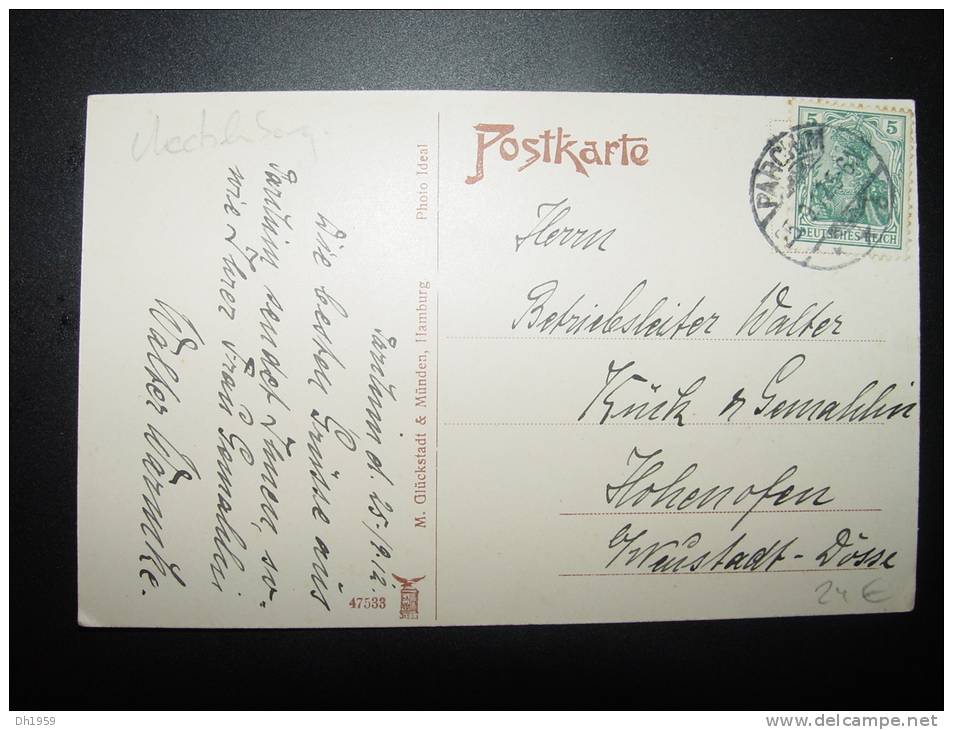 Postkarte
5 5
DEUTSCHES REICH
PARCHIM
Herrn
Betriebsleiter Walter
Kück & Gemahlin
Hohenofen
Neustadt-Dosse
24 €
Mecklenburg.
Parchim d. 25./9.12.
Die besten Grüsse aus
Parchim sendet Ihnen, so-
wie Ihrer Frau Gemahlin
Walter Warnke.
M. Glückstadt & Münden, Hamburg Photo Ideal
47533
Dh1959
www.delcampe.net